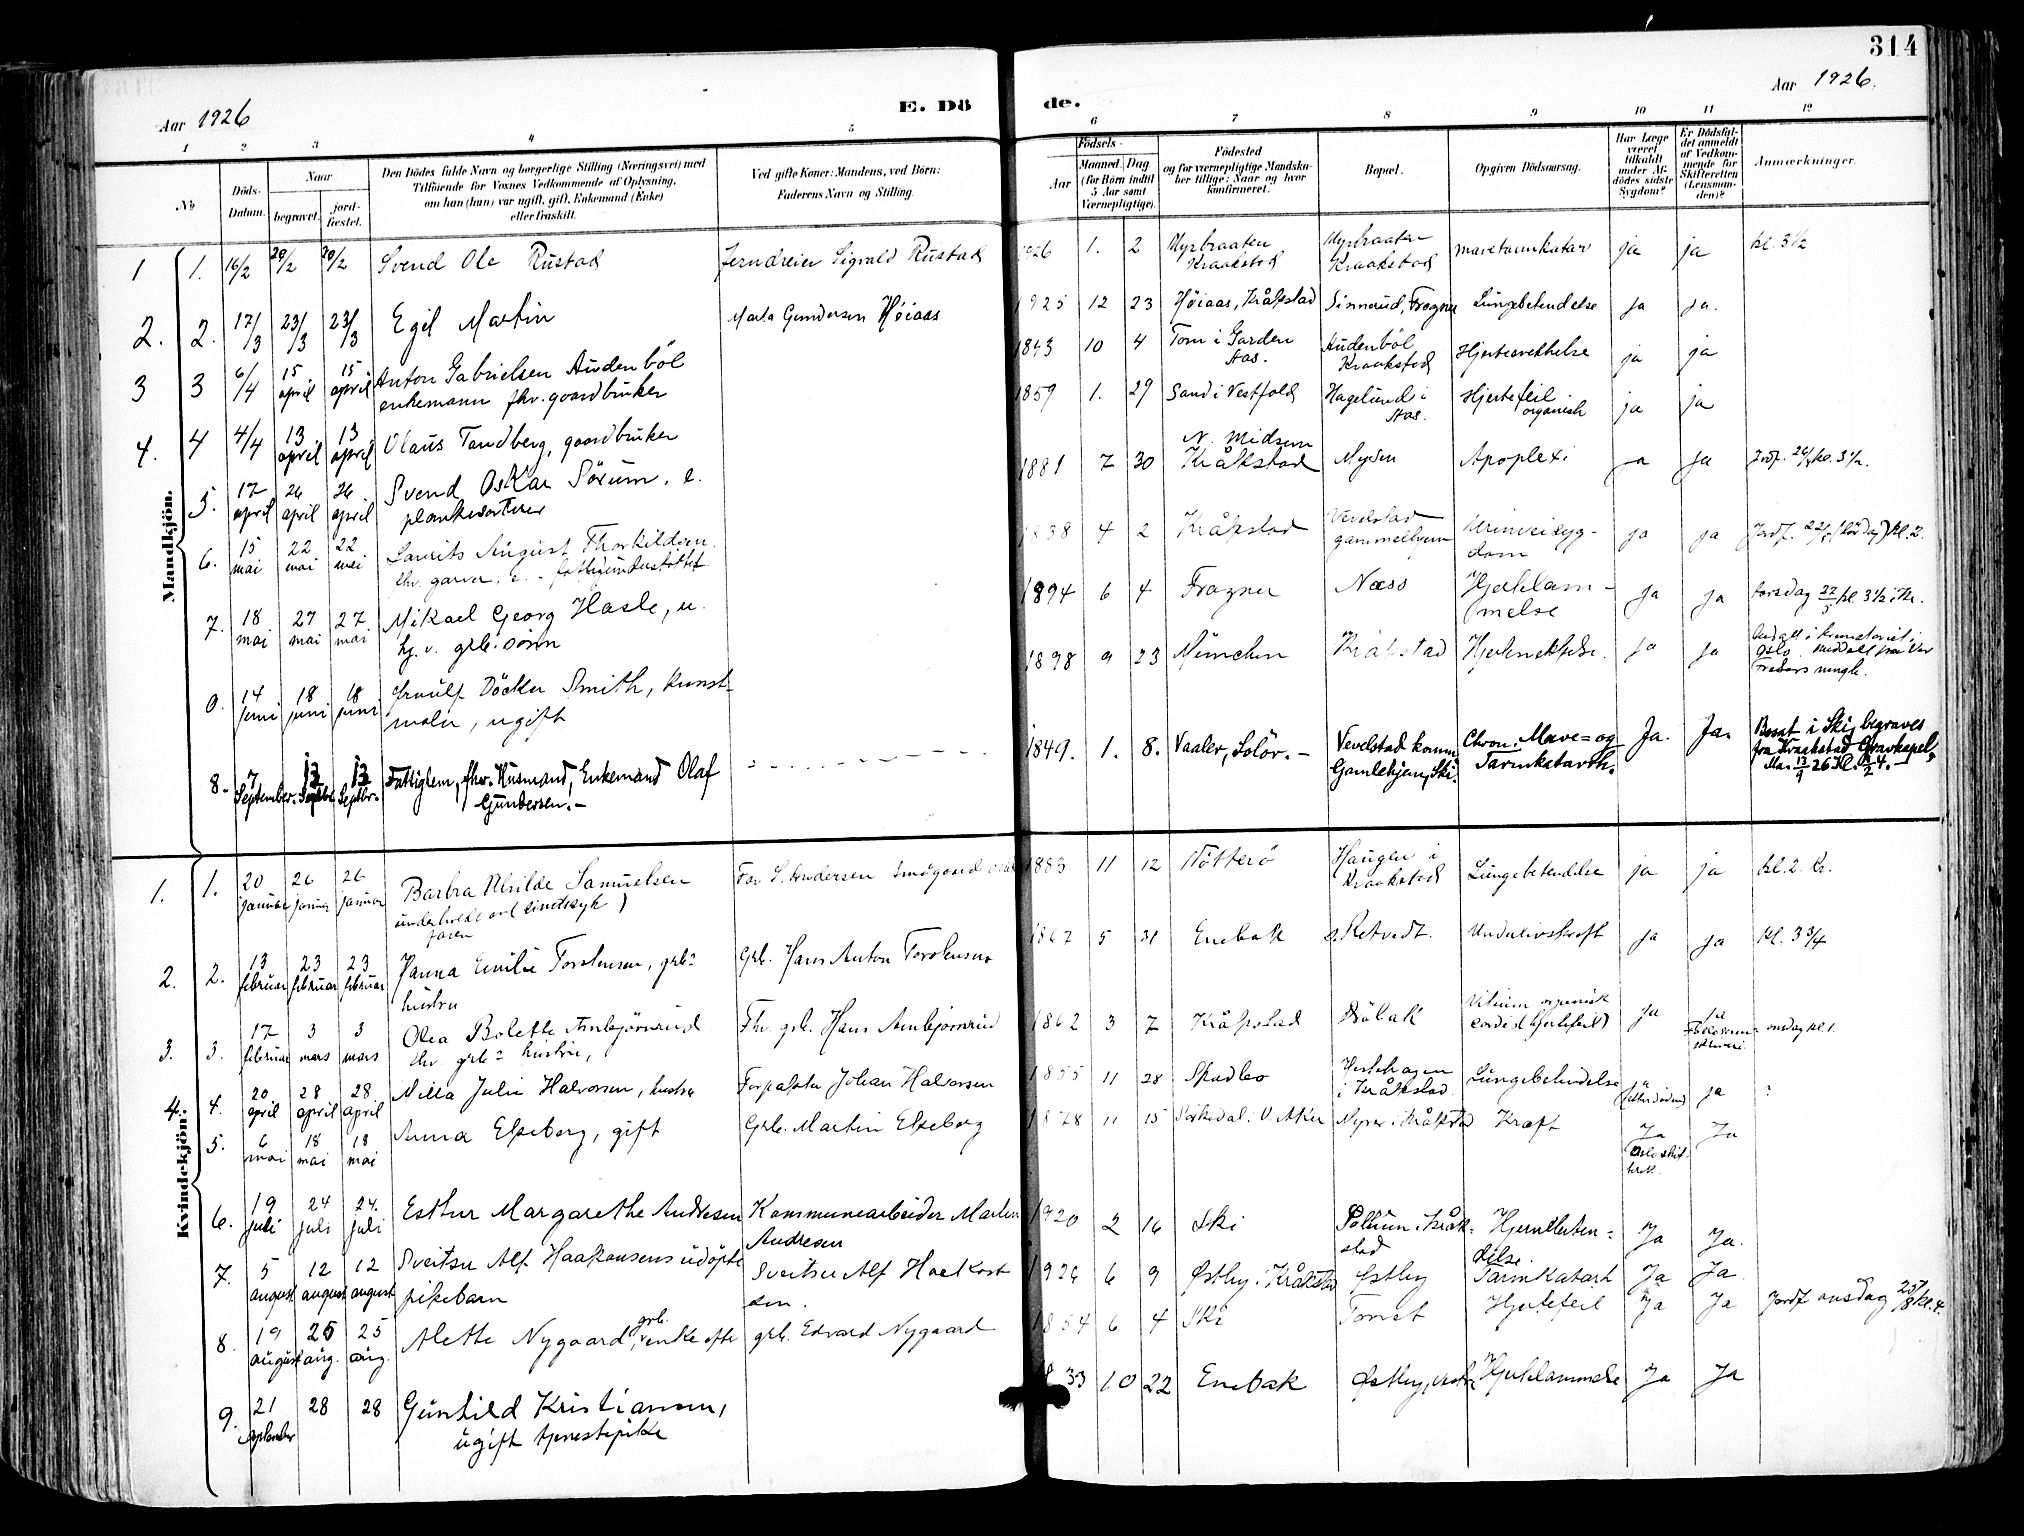 314
Aar 1926
E. Dö
de.
Aar 1926.
1 2 3 4 5 6 7 8 9 10 11 12
No
Döds-Datum.
Naar
begravet.
jord-fæstet.
Den Dödes fulde Navn og borgerlige Stilling (Næringsvei) med
Tilföiende for Voxnes Vedkommende af Oplysning,
om han (hun) var ugift, gift, Enkemand (Enke)
eller fraskilt.
Ved gifte Koner: Mandens, ved Börn:
Faderens Navn og Stilling.
Födsels-
Aar
Maaned. Dag.
(for Börn indtil
5 Aar samt
Værnepligtige).
Födested
og for værnepligtige Mandska-
ber tillige: Naar og hvor
konfirmeret.
Bopæl.
Opgiven Dödsaarsag.
Har Læge
været
tilkaldt
under Af-
dödes sidste
Sygdom?
Er Dödsfal-
det anmeldt
af Vedkom-
mende for
Skifteretten
(Lensman-
den)?
Anmærkninger.
Mandkjön.
1 1. 16/2 20/2 20/2 Svend Ole Rustad Jerndreier Sigvald Rustad 1926 1. 2 Myrbraaten Kraakstad Myrbraaten Kraakstad mavetarmkatar ja ja kl. 3½
2. 2. 17/3 23/3 23/3 Egil Martin Marta Gundersen Höiaas 1925 12 23 Höiaas, Kråkstad Frogner Lungebetendelse ja ja.
3 3 6/4 15 april 15 april Anton Gabrielsen Audenböl enkemann fhv. gaardbruker 1843 10 4 Tom i Garden Aas. Audenböl Kraakstad ja ja
4. 4 4/4 13 april 13 april Olaus Tandberg, gaardbruker 1859 1. 29 Sand i Vestfold Hagelund i Aas. Hjertefeil organisk ja ja
5. 17 april 26 april 26 april Svend Oskar Sörum, e. plankesorterer 1881 7 30 N. Midsem Kråkstad Mysen Apoplexi ja ja Jordf. 26/4 kl. 3½.
6. 15 mai 22 mai 22 mai Laurits August Thorkildsen fhv. garver, e. - fattigunderstöttet 1838 4 2 Kråkstad Vevelstad gammelhjem Urinveisyg-dom ja ja Jordf. 22/5 (lördag) kl. 2.
7. 18 mai 27 mai 27 mai Mikael Georg Hasle, u. hj. v. grb. sönn 1894 6 4 Frogner Næss Hjertelam-melse ja ja torsdag 27/5 kl. 3½ i Kr.
0. 14 juni 18 juni 18 juni Döcker Smith, kunst-maler, ugift 1898 9 23 München Kråkstad ja ja
8. 7 September. 13 Septbr. 13 Septbr. Fattiglem, fhv. Husmand, Enkemand Olaf Gundersen. - 1849. 1. 8. Vaaler, Solör. - Vevelstad komm. Gamlehjem, Ski. Chron. Mave= og Tarmkatarrh. Ja. Ja. Bosat i Ski, begraves fra Kraakstad Gravkapel,
Kvindekjön.
1. 1. 20 januar 26 januar 26 januar Barbra Samuelsen Far S. Andersen 1883 11 12 Nötterö Haugen i Kraakstad Lungebetendelse ja ja kl. 2. Kr.
2. 2. 13 februar 23 februar 23 februar Hanna Emilie Torstensen, grb? hustru Grb. Hans Anton Torstensen 1867 5 31 Enebak Retvedt. Underlivskreft ja ja kl. 3¾
3. 3. 17 februar 3 mars 3 mars Olea Bolette Ambjörnrud fhv. grb? hustru, Fhv. grb. Hans Ambjörnrud 1862 3 7 Kråkstad Dröbak Vitium organisk cordis (hjertefeil) ja ja onsdag kl. 1.
4. 4. 20 april 28 april 28 april Nilla Julie Halvorsen, hustru Forpakter Johan Halvorsen 1855 11 28 Hestehagen i Kråkstad Lungebetendelse ja ja ?
5. 6 mai 18 mai 18 mai Anna Ekeberg, gift Grb. Martin Ekeberg 1878 11 15 Sörkedal i V. Aker Myrer i Kråkstad Kræft Ja Ja
6. 19 juli 24 juli 24. juli Esther Margarethe Andresen Kommunearbeider Martin Andresen 1920 2 16 Ski i Kråk-stad Hjernebeten-delse. Ja Ja.
7. 5 august 12 august 12 august Sveitser Alf Haakonsens udöpte pikebarn Sveitser Alf Haakon sen. 1926 6 9 Østby i Kråkstad Østby Tarmkatarh Ja Ja
8. 19 august 25 aug. 25 aug. Alette Nygaard, grb. enke efter grb. Edvard Nygaard 1854 6 4 Ski Tomt Hjertefeil Ja Ja Jordf onsdag 25/8 kl. 4.
9. 21 september 28 28 Gunhild Kristiansen, ugift tjenestepike 1833 10 22 Enebak Østby, Hjertelammelse Ja Ja